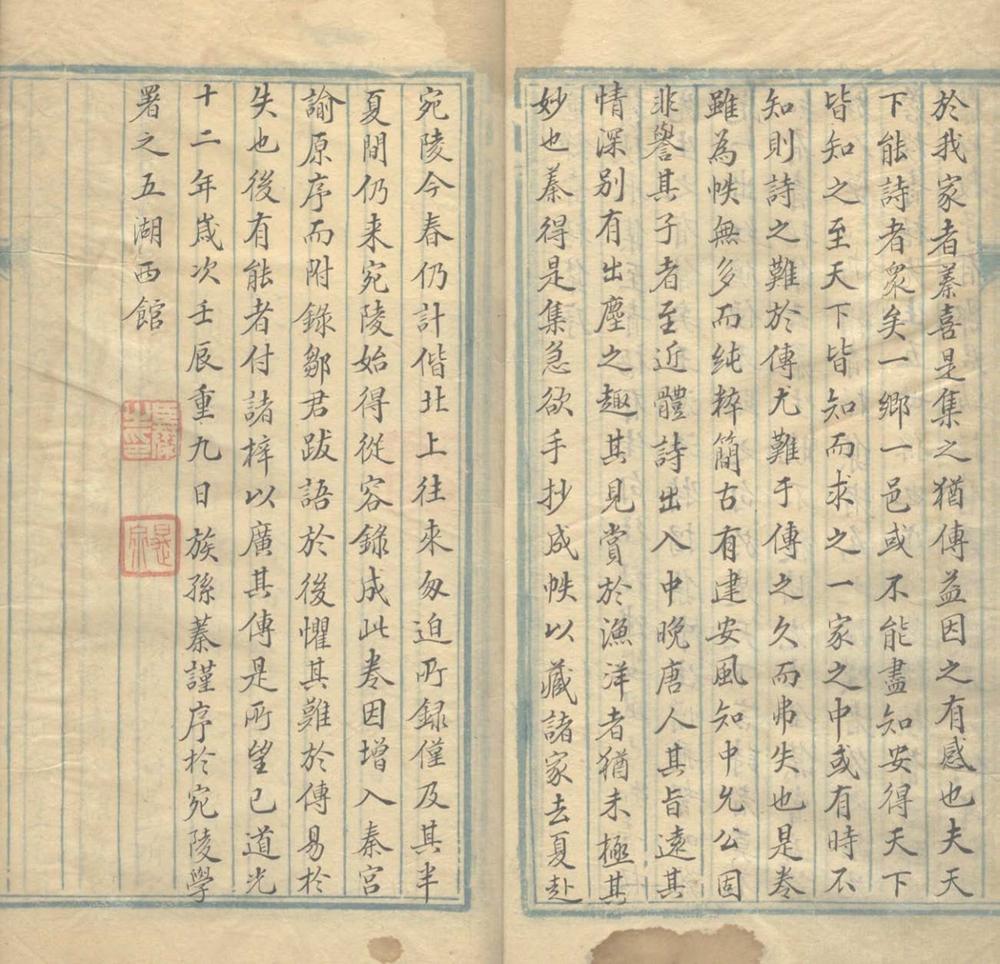 於我家者蓁喜是集之猶傳益因之有感也夫天
下能詩者衆矣一鄉一邑或不能盡知安得天下
皆知之至天下皆知而求之一家之中或有時不
知則詩之難於傳尤難于傳之久而弗失也是卷
雖為帙無多而純粹簡古有建安風知中允公固
非譽其子者至近體詩出入中晚唐人其旨遠其
情深别有出塵之趣其見賞於漁洋者猶未極其
妙也蓁得是集急欲手抄成帙以藏諸家去夏赴
宛陵今春仍計偕北上往來匆迫所録僅及其半
夏間仍来宛陵始得從容錄成此卷因增入秦宮
諭原序而附錄鄒君跋語於後懼其難於傳易於
失也後有能者付諸梓以廣其傳是所望已道光
十二年嵗次壬辰重九日族孫蓁謹序於宛陵學
署之五湖西館